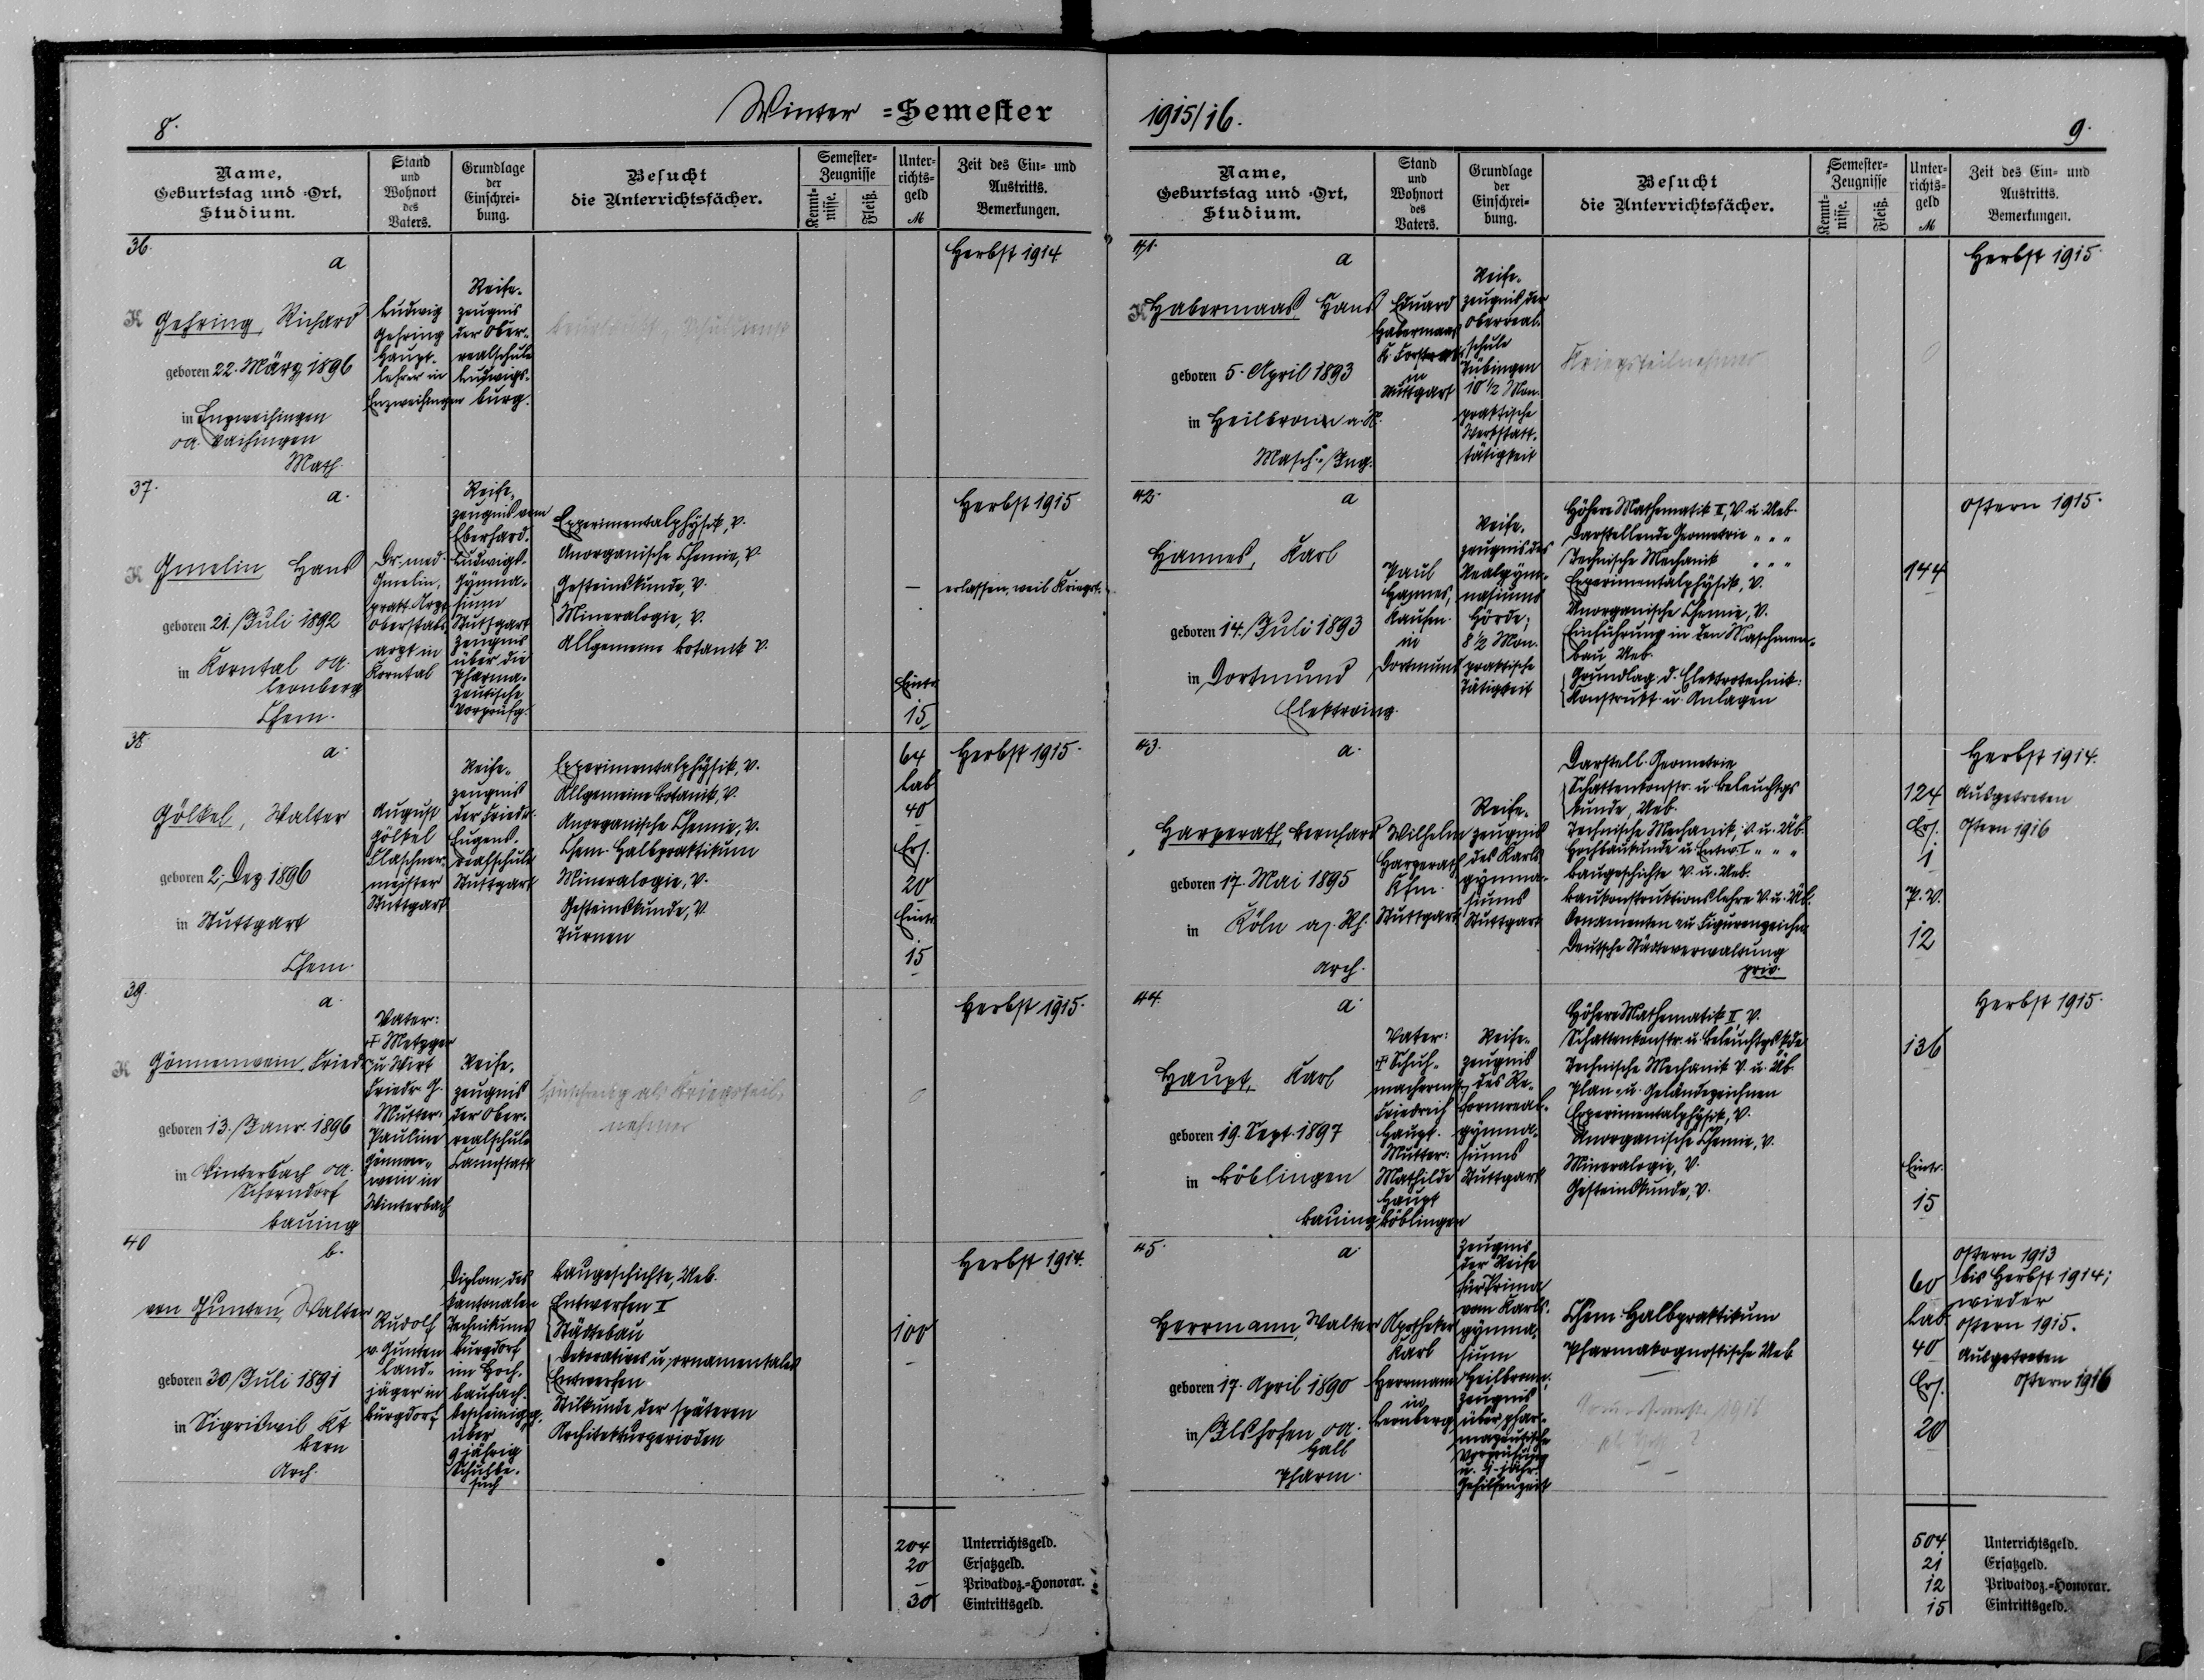 8.
Winter =Semester
Name,
Geburtstag und =Ort,
Studium.
Stand
und
Wohnort
des
Vaters.
Grundlage
der
Einschrei-
bung.
Besucht
die Unterrichtsfächer.
Semester-
Zeugnisse
Kennt-
nisse.
Fleiß.
Unter-
richts-
geld
M
Zeit des Ein- und
Austritts.
Bemerkungen.
36.
a
K Gehring, Richard
geboren 22. März 1896
in Enzweihingen
OA. Vaihingen
Math.
Ludwig
Gehring
Haupt-
lehrer in
Enzweihingen
Reife-
zeugnis
der Ober-
realschule
Ludwigs-
burg.
Herbst 1914
37.
a.
K Gmelin Hans
geboren 21. Juli 1892
in Korntal OA.
Leonberg
Chem.
Dr. med.
Gmelin,
prakt. Arzt
Oberstabs-
arzt in
Korntal
Reife-
zeugnis vom
Eberhard-
Ludwigs-
Gymna-
sium
Stuttgart
Zeugnis
über die
Pharma-
zeutische
Vorprüfg.
Experimentalphysik, V.
Anorganische Chemie, V.
Gesteinskunde, V.
Mineralogie, V.
Allgemeine Botanik V.
—
Eintr.
15
Herbst 1915
erlassen, weil Kriegst.
38
a.
Gölkel, Walter
geboren 2. Dez 1896
in Stuttgart
Chem.
August
Gölkel
Flaschner-
meister
Stuttgart
Reife-
zeugnis
der Friedr.
Eugens-
realschule
Stuttgart
Experimentalphysik, V.
Allgemeine Botanik, V.
Anorganische Chemie, V.
Chem. Halbpraktikum
Mineralogie, V.
Gesteinskunde, V.
Turnen
64
Lab
40
Ers.
20
Eintr.
15
Herbst 1915.
39.
a.
K Gönnenwein, Friedr.
geboren 13. Janr. 1896
in Winterbach OA.
Schorndorf
Bauing
Vater:
† Metzger
u. Wirt
Friedr. G.
Mutter:
Pauline
Gönnen-
wein in
Winterbach
Reife-
zeugnis
der Ober-
realschule
Cannstatt
Einschreibg als Kriegsteil-
nehmer
0
Herbst 1915.
40
b.
von Gunten, Walter
geboren 30 Juli 1891
in Sigriswil Kt
Bern
Arch.
Rudolf
v. Gunten
Land-
jäger in
Burgdorf
Diplom des
kantonalen
Technikums
Burgdorf
im Hoch-
baufach.
Bescheinigg.
über
9 jährig
Schulbe-
such
Baugeschichte, Ueb.
Entwerfen I
Städtebau
Dekoratives u. ornamentales
Entwerfen
Stilkunde der späteren
Architekturperioden
100
—
Herbst 1914.
204 Unterrichtsgeld.
20 Ersatzgeld.
— Privatdoz.=Honorar.
30 Eintrittsgeld.
1915/16.
9.
Name,
Geburtstag und =Ort,
Studium.
Stand
und
Wohnort
des
Vaters.
Grundlage
der
Einschrei-
bung.
Besucht
die Unterrichtsfächer.
Semester-
Zeugnisse
Kennt-
nisse.
Fleiß.
Unter-
richts-
geld
M
Zeit des Ein- und
Austritts.
Bemerkungen.
41.
a
K Habermaas, Hans
geboren 5. April 1893
in Heilbronn a. N.
Masch.-Ing.
Eduard
Habermaas
K. Forstrat
in
Stuttgart
Reife-
zeugnis der
Oberreal-
schule
Tübingen
10 1/2 Mon.
praktische
Werkstatt-
tätigkeit
Kriegsteilnehmer
0
Herbst 1915.
42.
a
Hannes, Karl
geboren 14. Juli 1893
in Dortmund
Elektroing.
Paul
Hannes,
Kaufm.
in
Dortmund
Reife-
zeugnis des
Realgym-
nasiums
Hörde;
8 1/2 Mon.
praktische
Tätigkeit
Höhere Mathematik II, V. u. Ueb.
Darstellende Geometrie " " "
Technische Mechanik " " "
Experimentalphysik, V.
Anorganische Chemie, V.
Einführung in den Maschinen-
bau Ueb.
Grundlag. d. Elektrotechnik.
Konstrukt. u. Anlagen
144
—
Ostern 1915.
43.
a.
Harperath, Bernhard
geboren 17. Mai 1895
in Köln a/Rh.
Arch.
Wilhelm
Harperath
Kfm.
Stuttgart
Reife-
zeugnis
des Karls
gymna-
siums
Stuttgart
Darstell. Geometrie
Schattenkonstr. u. Beleuchtgs
kunde, Ueb.
Technische Mechanik, V. u. Üb.
Hochbaukunde u. Entw. I " " "
Baugeschichte V. u. Ueb.
Baukonstruktionslehre V. u. Üb.
Ornamenten- u. Figurenzeichn.
Deutsche Städteverwaltung
priv.
124
Ers.
1
P. D.
12
Herbst 1914.
Ausgetreten
Ostern 1916
44.
a.
Haupt, Karl
geboren 19. Sept. 1897
in Böblingen
Bauing
Vater:
† Schuh-
machermst.
Friedrich
Haupt.
Mutter:
Mathilde
Haupt
Böblingen
Reife-
zeugnis
des Re-
formreal-
gymna-
siums
Stuttgart
Höhere Mathematik II, V.
Schattenkonstr. u. Beleuchtgskde
Technische Mechanik V. u. Üb.
Plan- u. Geländezeichnen
Experimentalphysik, V.
Anorganische Chemie, V.
Mineralogie, V.
Gesteinskunde, V.
136
Eintr.
15
Herbst 1915.
45.
a.
Herrmann, Walter
geboren 17. April 1890
in Ilshofen OA.
Hall
Pharm.
Apotheker
Karl
Herrmann
in
Leonberg
Zeugnis
der Reife
für Prima
vom Karls-
gymna-
sium
Heilbronn;
Zeugnis
über phar-
mazeutische
Vorprüfung
u. 1-jähr.
Gehilfenzeit
Chem. Halbpraktikum
Pharmakognostische Ueb.
60
Lab.
40
Ers.
20
Ostern 1913
bis Herbst 1914;
wieder
Ostern 1915.
Ausgetreten
Ostern 1916
504 Unterrichtsgeld.
21 Ersatzgeld.
12 Privatdoz.=Honorar.
15 Eintrittsgeld.